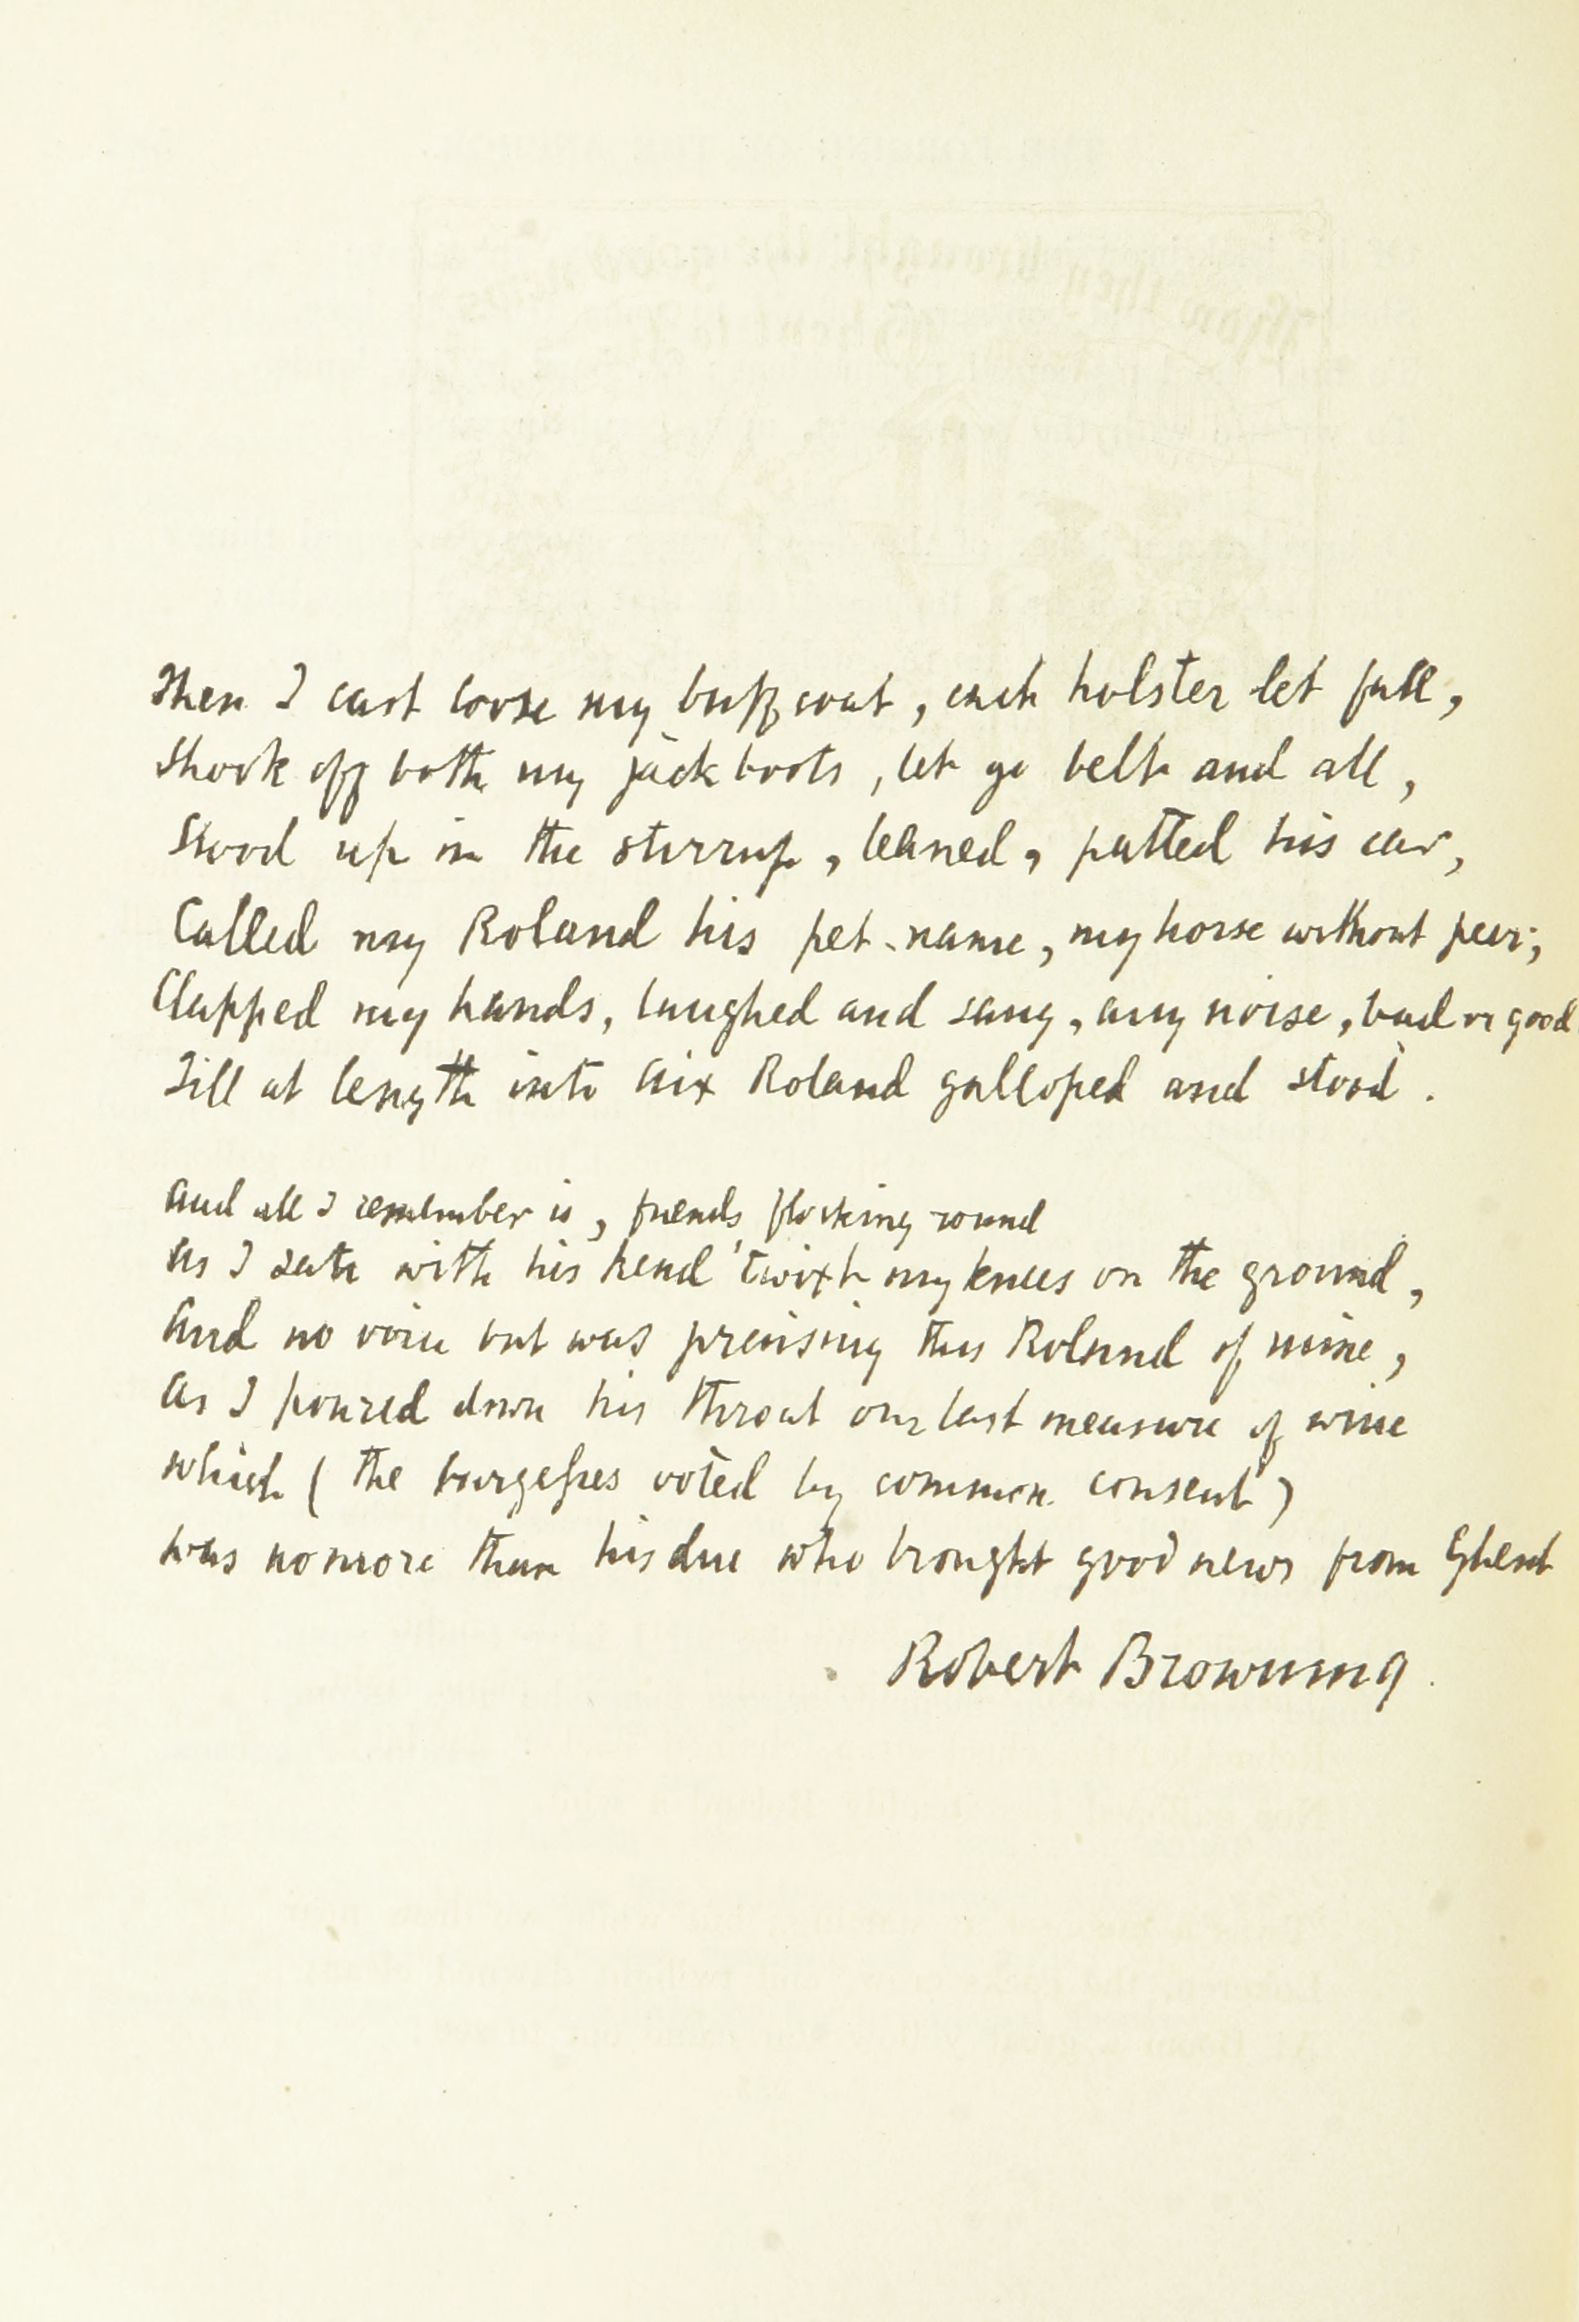 Then I cast loose my buff coat, each holster let fall,
Shook off both my jack boots, let go belt and all,
Stood up in the stirrup, leaned, patted his ear,
Called my Roland his pet-name, my horse without peer,
Clapped my hands, laughed and sang, any noise, bad or good
Till at length into Aix Roland galloped and stood.
And all I remember is, friends flocking round
As I sate with his head 'twixt my knees on the ground,
And no voice but was praising this Roland of mine,
As I poured down his throat our last measure of wine
Which (the burgesses voted by common consent)
Was no more than his due who brought good news from Ghent
Robert Browning.